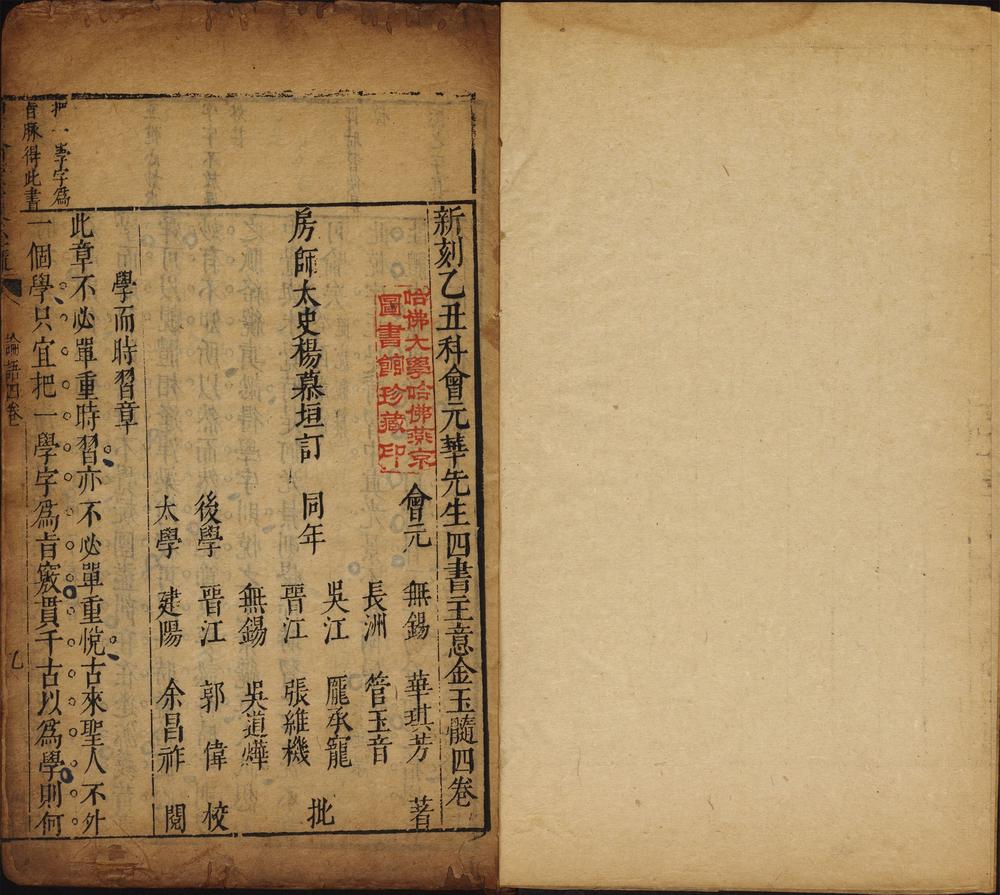 新刻乙丑科會元華先生四書主意金玉髓四卷
哈佛大學哈佛燕京
圖書館珍藏印
會元 無錫 華琪芳 著
長洲 管玉音
房師太史楊慕垣訂 同年 吳江 龎承寵 批
晉江 張維機
無錫 吳道燁
後學 晉江 郭偉 校
太學 建陽 余昌祚 閱
學而時習章
此章不必單重時習亦不必單重悅古來聖人不外
一個學只宜把一學字爲肯竅貫千古以爲學則何
把一學字爲
旨脉得此書
論語四卷